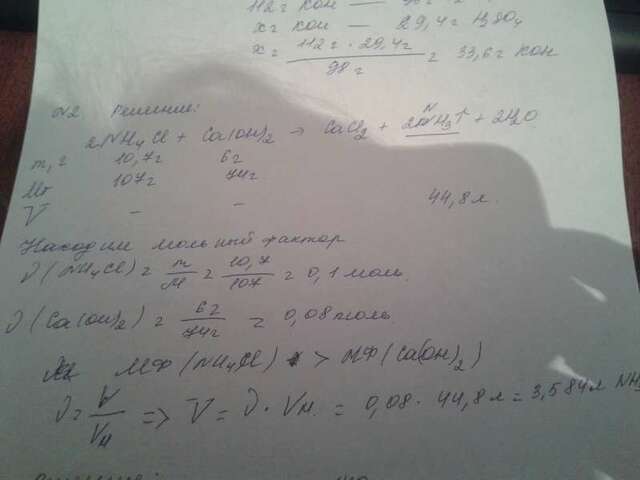 112 г KOH —
x г KOH — 29,4 г H₂SO₄
x = 112 г · 29,4 г / 98 г = 33,6 г KOH
№2 Решение:
2NH₄Cl + Ca(OH)₂ → CaCl₂ + 2NH₃↑ + 2H₂O
m, г 10,7 г 6 г
Mr 107 г 74 г
V – – 44,8 л.
Находим мольный фактор
ν(NH₄Cl) = m/M = 10,7/107 = 0,1 моль.
ν(Ca(OH)₂) = 6 г/74 г = 0,08 моль.
МФ (NH₄Cl) > МФ (Ca(OH)₂)
ν = V/Vм => V = ν · Vм. = 0,08 · 44,8 л = 3,584 л NH₃